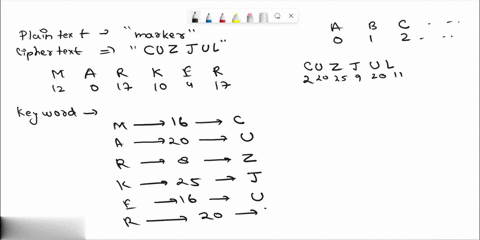 Plaintext → "marker"
Ciphertext ⇒ "CUZJUL"
A B C .. ..
0 1 2 .. ..
M A R K E R
12 0 17 10 4 17
C U Z J U L
2 20 25 9 20 11
Keyword →
M → 16 → C
A → 20 → U
R → 8 → Z
K → 25 → J
E → 16 → U
R → 20 →